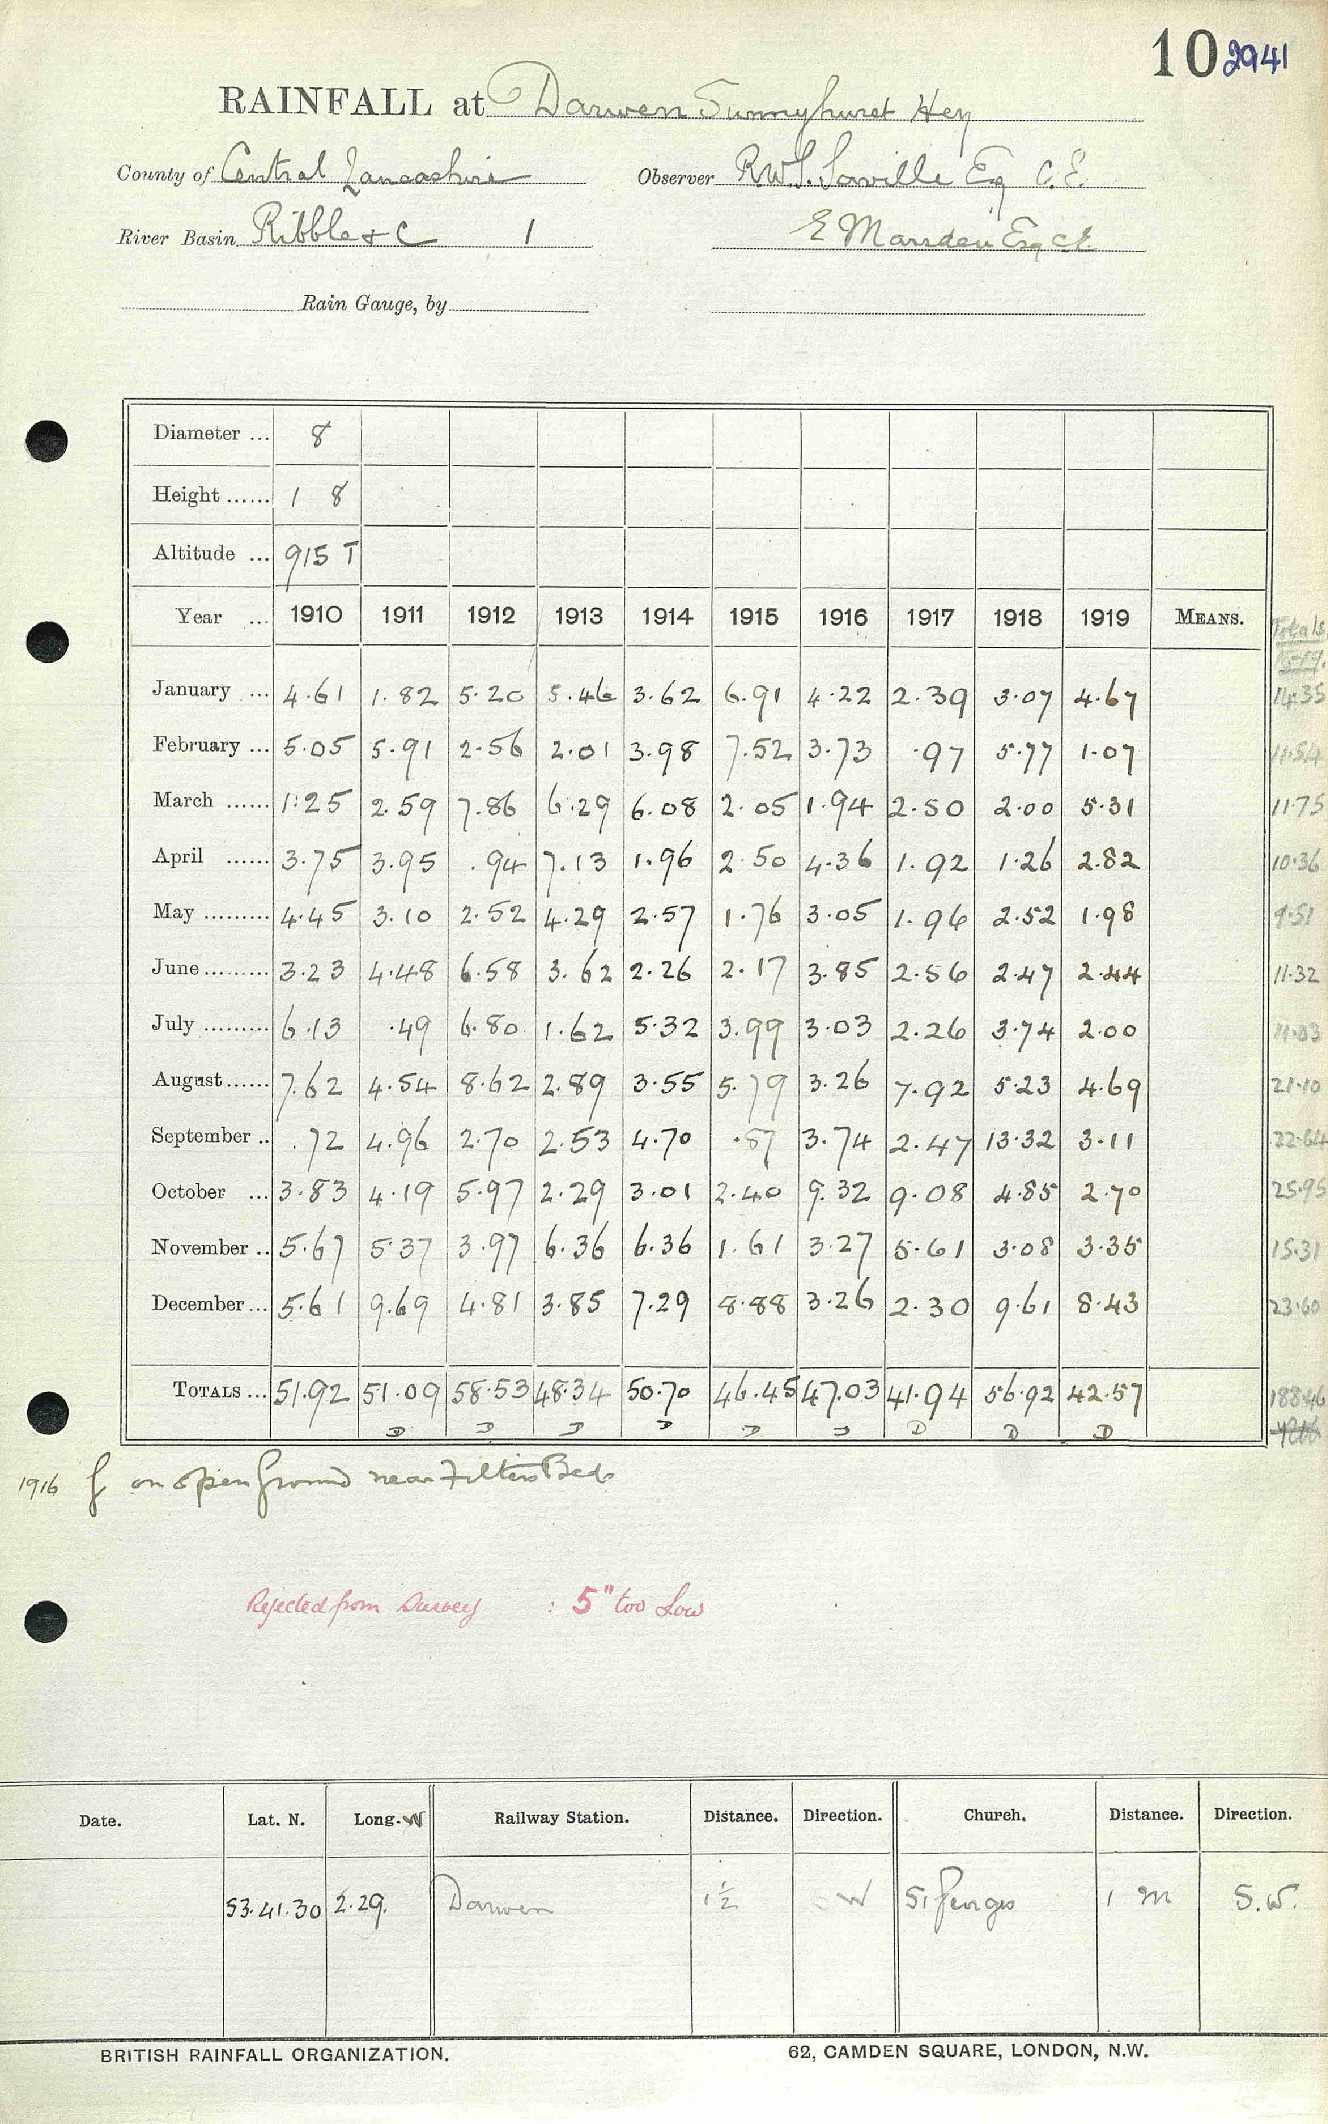 10 2941
RAINFALL at Darwen Sunnyhurst Hey
County of Central Lancashire Observer R.W.S. Saville Esq C.E.
River Basin Ribble & C 1 E Marsden Esq CE
Rain Gauge, by
Diameter ... 8
Height ...... 1 8
Altitude ... 915 T
Year ... 1910 1911 1912 1913 1914 1915 1916 1917 1918 1919 MEANS. Totals
15-19.
January ... 4.61 1.82 5.20 5.46 3.62 6.91 4.22 2.39 3.07 4.67 14.35
February ... 5.05 5.91 2.56 2.01 3.98 7.52 3.73 .97 5.77 1.07 11.54
March ...... 1.25 2.59 7.86 6.29 6.08 2.05 1.94 2.50 2.00 5.31 11.75
April ...... 3.75 3.95 .94 7.13 1.96 2.50 4.36 1.92 1.26 2.82 10.36
May ......... 4.45 3.10 2.52 4.29 2.57 1.76 3.05 1.96 2.52 1.98 9.51
June ......... 3.23 4.48 6.58 3.62 2.26 2.17 3.85 2.56 2.47 2.44 11.32
July ......... 6.13 .49 6.80 1.62 5.32 3.99 3.03 2.26 3.74 2.00 11.03
August ...... 7.62 4.54 8.62 2.89 3.55 5.79 3.26 7.92 5.23 4.69 21.10
September .. .72 4.96 2.70 2.53 4.70 .87 3.74 2.47 13.32 3.11 22.64
October ... 3.83 4.19 5.97 2.29 3.01 2.40 9.32 9.08 4.85 2.70 25.95
November .. 5.67 5.37 3.97 6.36 6.36 1.61 3.27 5.61 3.08 3.35 15.31
December ... 5.61 9.69 4.81 3.85 7.29 8.88 3.26 2.30 9.61 8.43 23.60
TOTALS ... 51.92 51.09 58.53 48.34 50.70 46.45 47.03 41.94 56.92 42.57 188.46
D D D D D D D D D
1916 f on open ground near Filter Beds
Rejected from Survey : 5" too Low
Date. Lat. N. Long. W Railway Station. Distance. Direction. Church. Distance. Direction.
53.41.30 2.29. Darwen 1½ W St Georges 1 m S.W.
BRITISH RAINFALL ORGANIZATION. 62, CAMDEN SQUARE, LONDON, N.W.